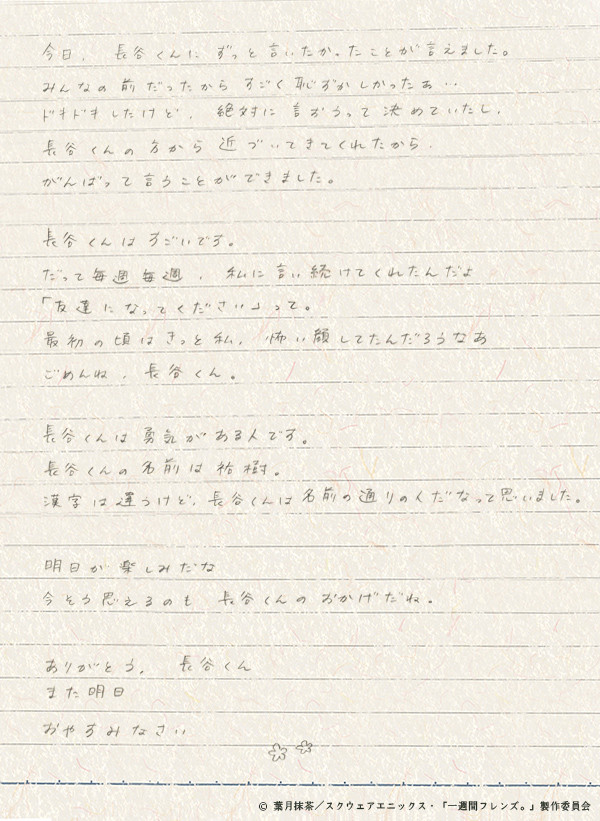 今日、長谷くんに ずっと言いたかったことが言えました。
みんなの前だったから すごく恥ずかしかったぁ…
ドキドキしたけど、絶対に 言おうって 決めていたし、
長谷くんの方から 近づいてきてくれたから、
がんばって言うことができました。
長谷くんはすごいです。
だって毎週毎週、私に言い続けてくれたんだよ
「友達になってください」って。
最初の頃はきっと私、怖い顔してたんだろうなあ
ごめんね、長谷くん。
長谷くんは 勇気がある人です。
長谷くんの名前は祐樹。
漢字は違うけど、長谷くんは名前の通りの人だなって思いました。
明日が楽しみだな
今そう思えるのも 長谷くんのおかげだね。
ありがとう、長谷くん
また明日
おやすみなさい
© 葉月抹茶／スクウェアエニックス・「一週間フレンズ。」製作委員会